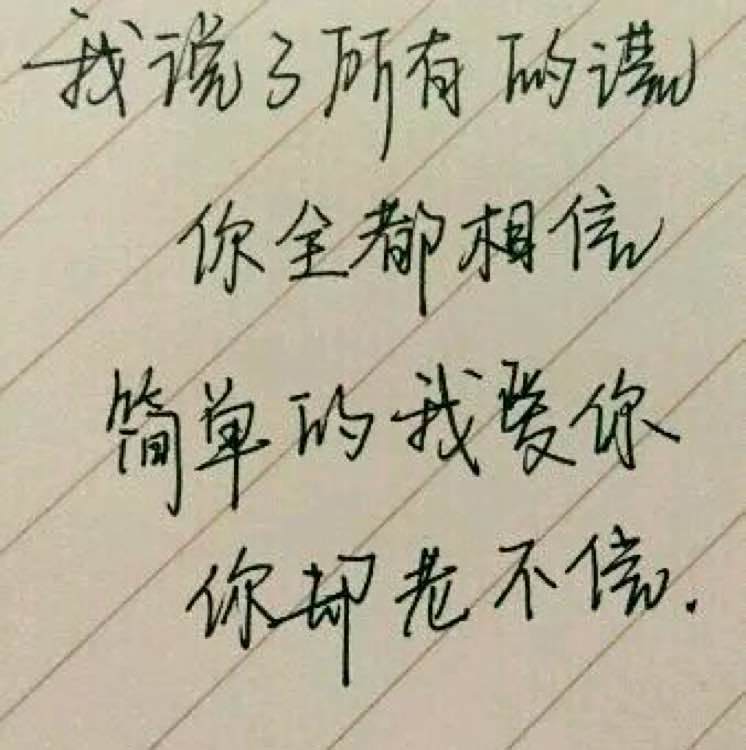 我说了所有的谎
你全都相信
简单的我爱你
你却老不信.